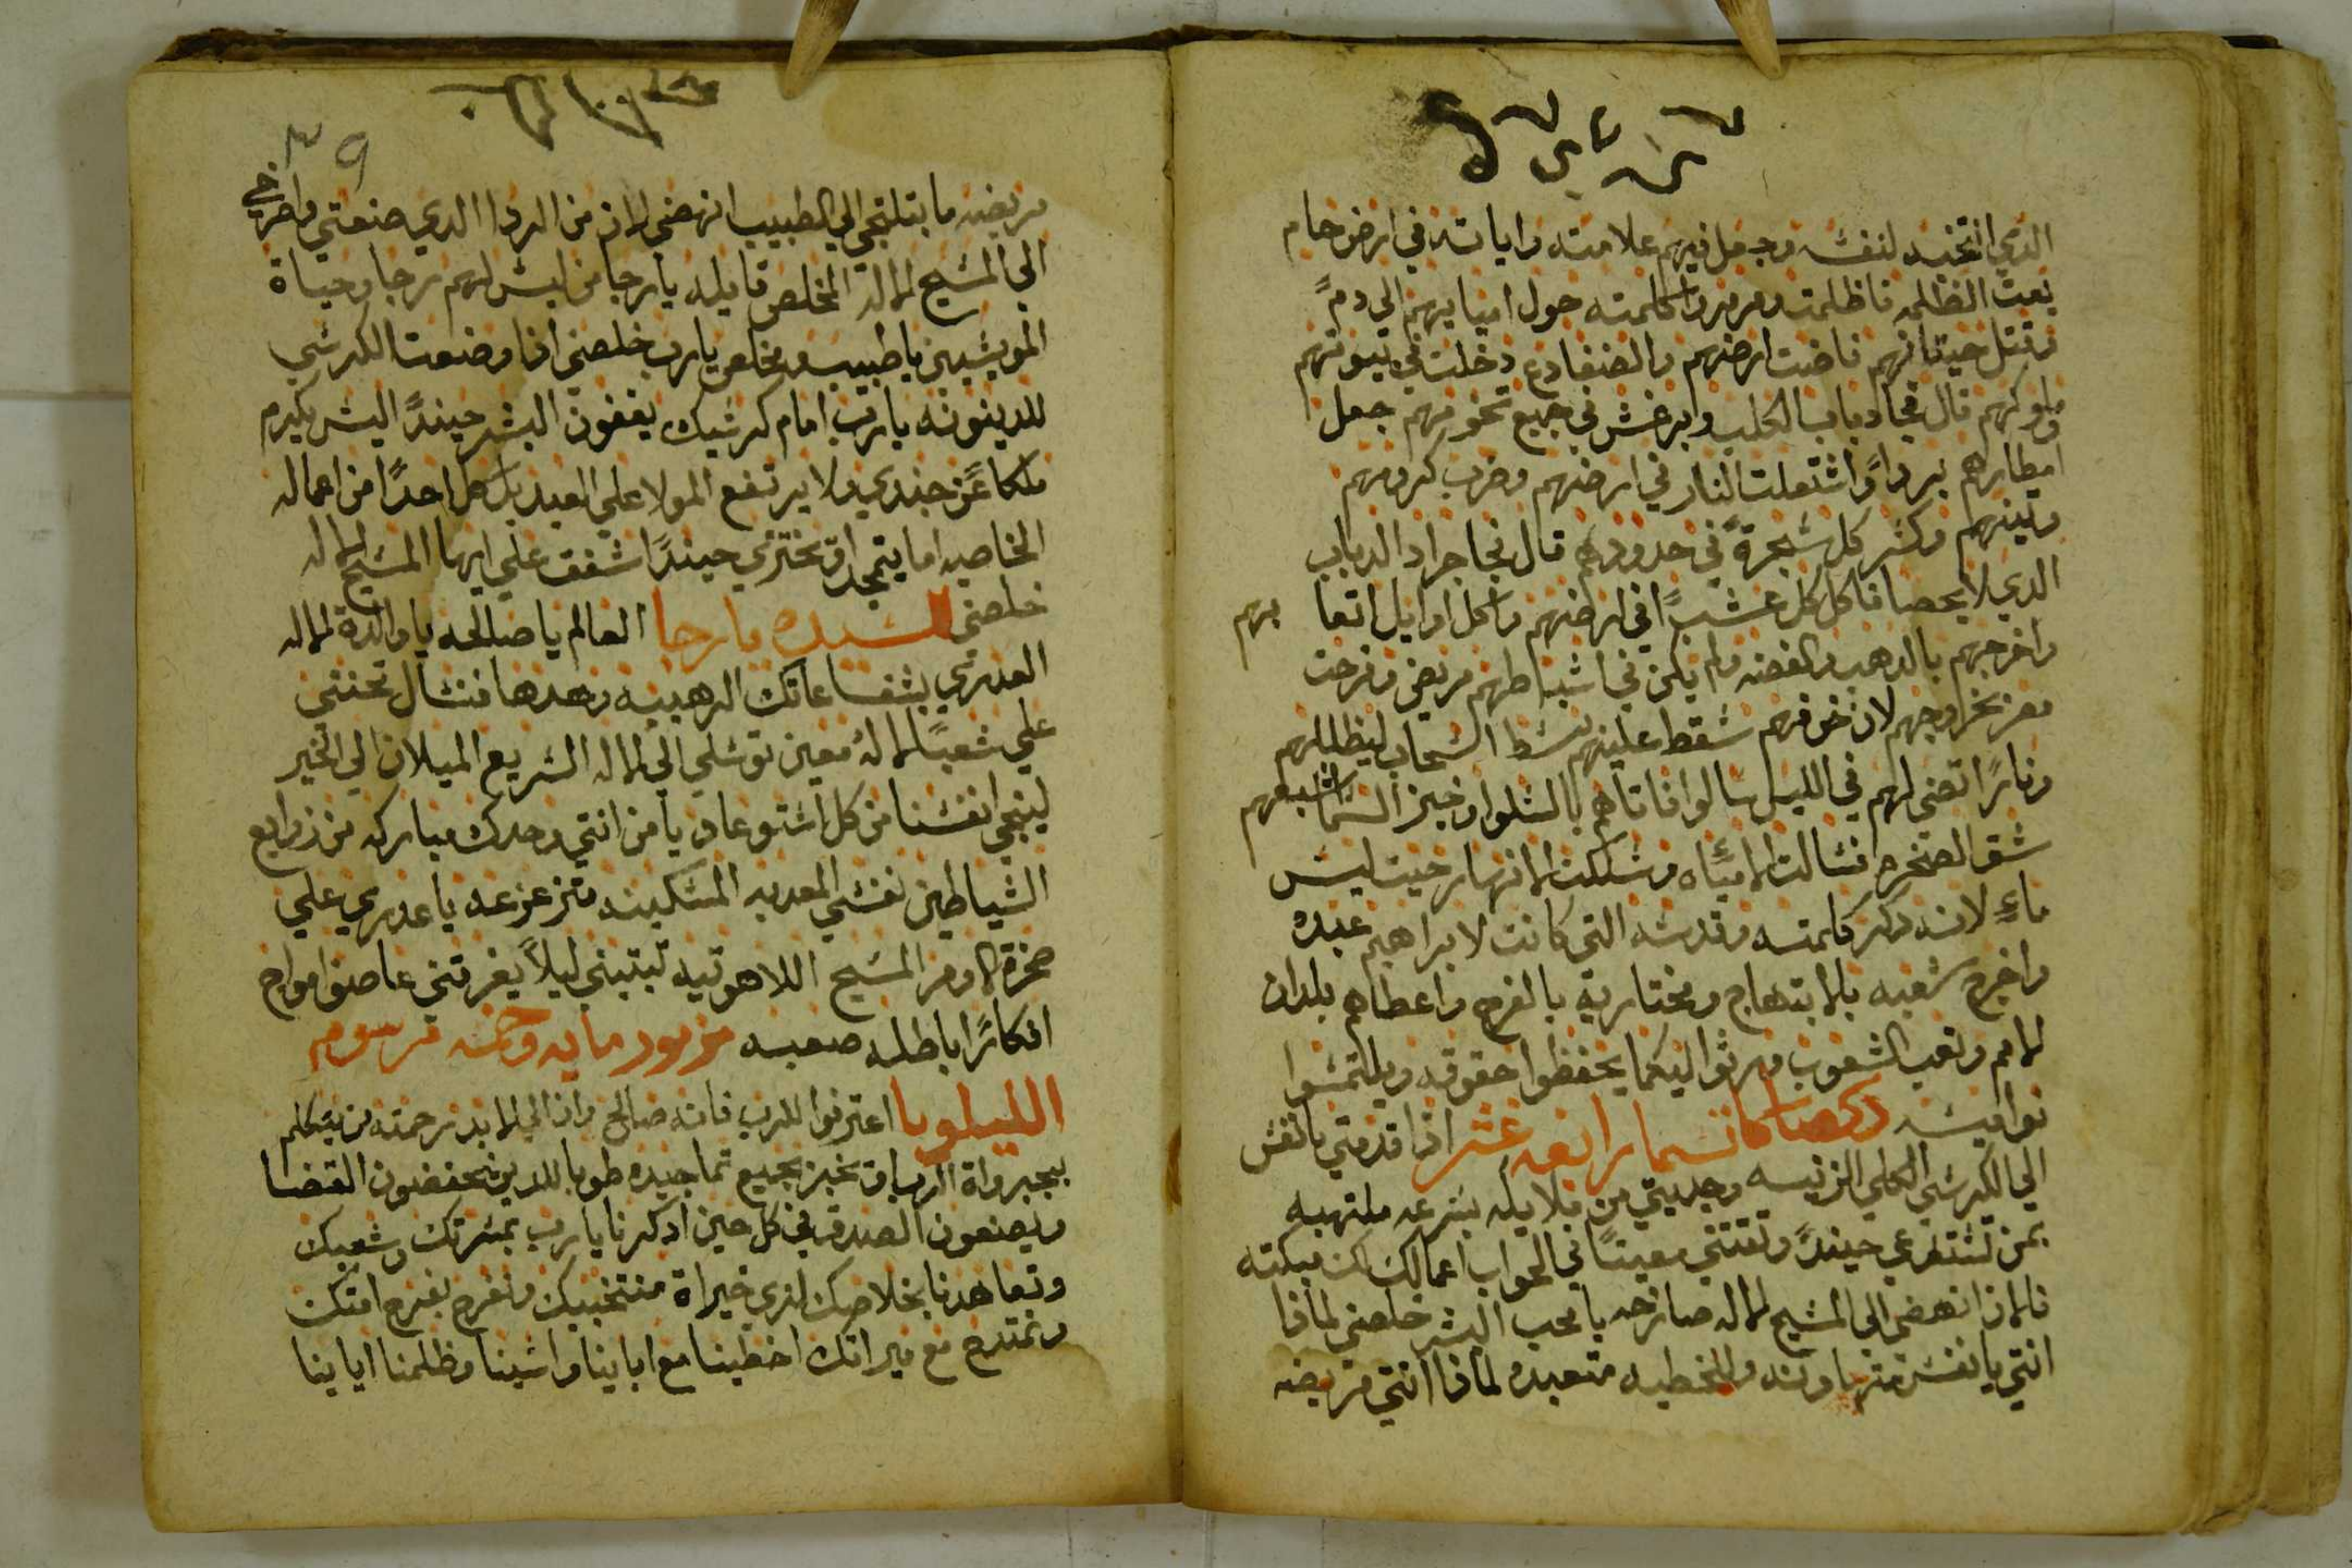 الدي انتخبه لنفسه وجعل فيهم علامته واياته في ارض حام
بعت الظلمه فاظلمت ومرمروا كلمته حول امياههم الي دمً
وقتل حيتانهم فاضت ارضهم والضفادع دخلت في بيوتهم
وملوكهم قال فجا دباب الكلب وبرغش في جميع تخومهم جعل
امطارهم برداً واشتعلت النار في ارضهم وضرب كرومهم
وتينهم وكسر كل شجرةً في حدودهم قال فجا جراد الدباب
الدي لا يحصا فاكل كل عشبًا في ارضهم واكل اوايل اتعابهم
واخرجهم بالدهب والفضه ولم يكن في اسباطهم مريض وفرحت
مصر بخروجهم لان خوفهم سقط عليهم بسط السحاب ليظللهم
ونارًا تضي لهم في الليل سالوا فاتاهم بالسلوا وخبز السما اشبعهم
شق الصخره فسالت الامياه وسلكت الانهار حيت ليس
ماءٍ لانه دكر كلمته وقدسه التي كانت لابراهيم عبده
واخرج شعبه بالابتهاج ومختاريه بالفرح واعطاهم بلدان
الامم وتعب الشعوب ورثوا لكيما يحفظوا حقوقه ويلتمسوا
نواميسه دكصا كاتسما رابعه عشر ادا قدمتي يا نفس
الي الكرسي الكلي الرئيسه وجديتي من ملايكه بسرعه ملتهبه
بمن تستفرعي حيندً وتقتني معينًا في الجواب اعمالك لك مبكته
فالان انهضي الي المسيح الاله صارخه يا محب البشر خلصني لمادا
انتي يا نفس متهاونه وللخطيه متعبده لمادا انتي مريضه
٣٩
مريضه ما بتلتجي الي الطبيب انهضي الان من الردا الدي صنعتي واصرخي
الي المسيح الاله المخلص قايله يا رجا من ليس لهم رجا وحياة
المويسيين يا طبيب ومخلص يا رب خلصني ادا وضعت الكرسي
للدينونه يا رب امام كرسيك يقفون البشر حيندً ليس يكرم
ملكا عن جندي ولا يرتفع المولا علي العبد بل كل احدًا من اعماله
الخاصيه اما يتمجد او يختزي حيندً اشفق علي ايها المسيح الاله
خلصني للسيده يا رجا العالم يا صالحه يا والدة الاله
العدري بشفاعاتك الرهيبيه وحدها نسال تحنني
علي شعبًا لا له معين توسلي الي الاله السريع الميلان الي الخير
لينجي انفسنا من كل استوعاد يا من انتي وحدك مباركه من زوابع
الشياطين نفسي المعدبه المسكينه متزعزعه يا عدري علي
صخرة اوامر المسيح اللاهوتيه تبتيني ليلاً يغرقني عاصف امواج
افكارًا باطله صعبه مزمور مايه وخمسه مرسوم
الليلويا اعترفوا للرب فانه صالح وان الي الابد رحمته من يتكلم
بجبرواة الرب او يخبر بجميع تماجيده طوبا للدين يحفضون القضا
ويصنعون الصدق في كل حين ادكرنا يا رب بمسرتك وشعبك
وتعاهدنا بخلاصك لنري خيراة منتخبيك ونفرح بفرح امتك
ونمتدح مع ميراتك اخطينا مع ابابنا واسينا وظلمنا ابابنا